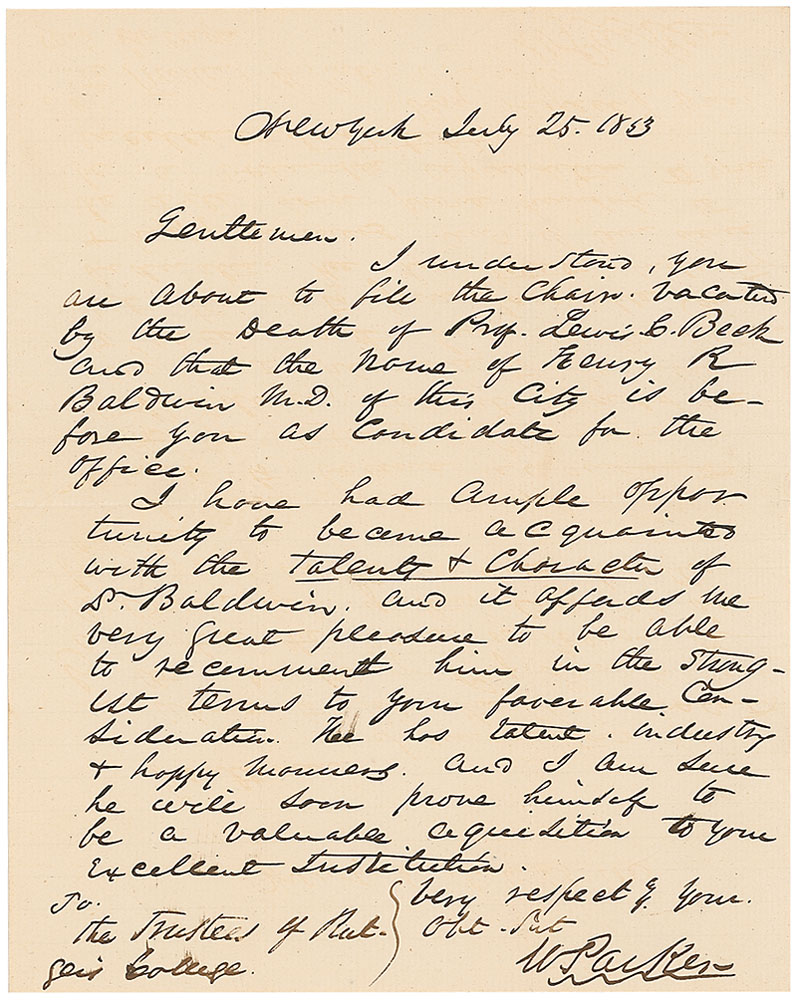 New York July 25. 1853
Gentlemen.
I understand, you
are about to fill the Chair. vacated
by the Death of Prof. Lewis C. Beck
and that the Name of Henry R
Baldwin M.D. of this City is be-
fore you as Candidate for the
office.
I have had ample oppor
tunity to become acquainted
with the Talents & Character of
Dr. Baldwin. and it affords me
very great pleasure to be able
to recommend him in the strong-
est terms to your favorable Con-
sideration. He has talent. industry
& happy manners. and I am sure
he will soon prove himself to
be a valuable acquisition to your
Excellent Institution.
To.
the Trustees of Rut-
gers College.
Very respecty. your.
Obt - Svt
W Parker